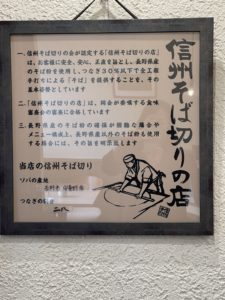 信州そば切りの店
一、信州そば切りの会が認定する「信州そば切りの店」
は、お客様に安全、安心、正直を旨とし、長野県産
のそば粉を使用し、つなぎ30%以下で全工程
手打ちによる「そば」を提供することを、その
基本姿勢としています
二、「信州そば切りの店」は、同会が委嘱する食味
審査会の審査に合格しています
三、長野県産のそば粉の確保が困難な場合や
メニュー構成上、長野県産以外のそば粉も使用
する場合には、その旨を明示致します
当店の信州そば切り
ソバの産地
つなぎの割合
二八